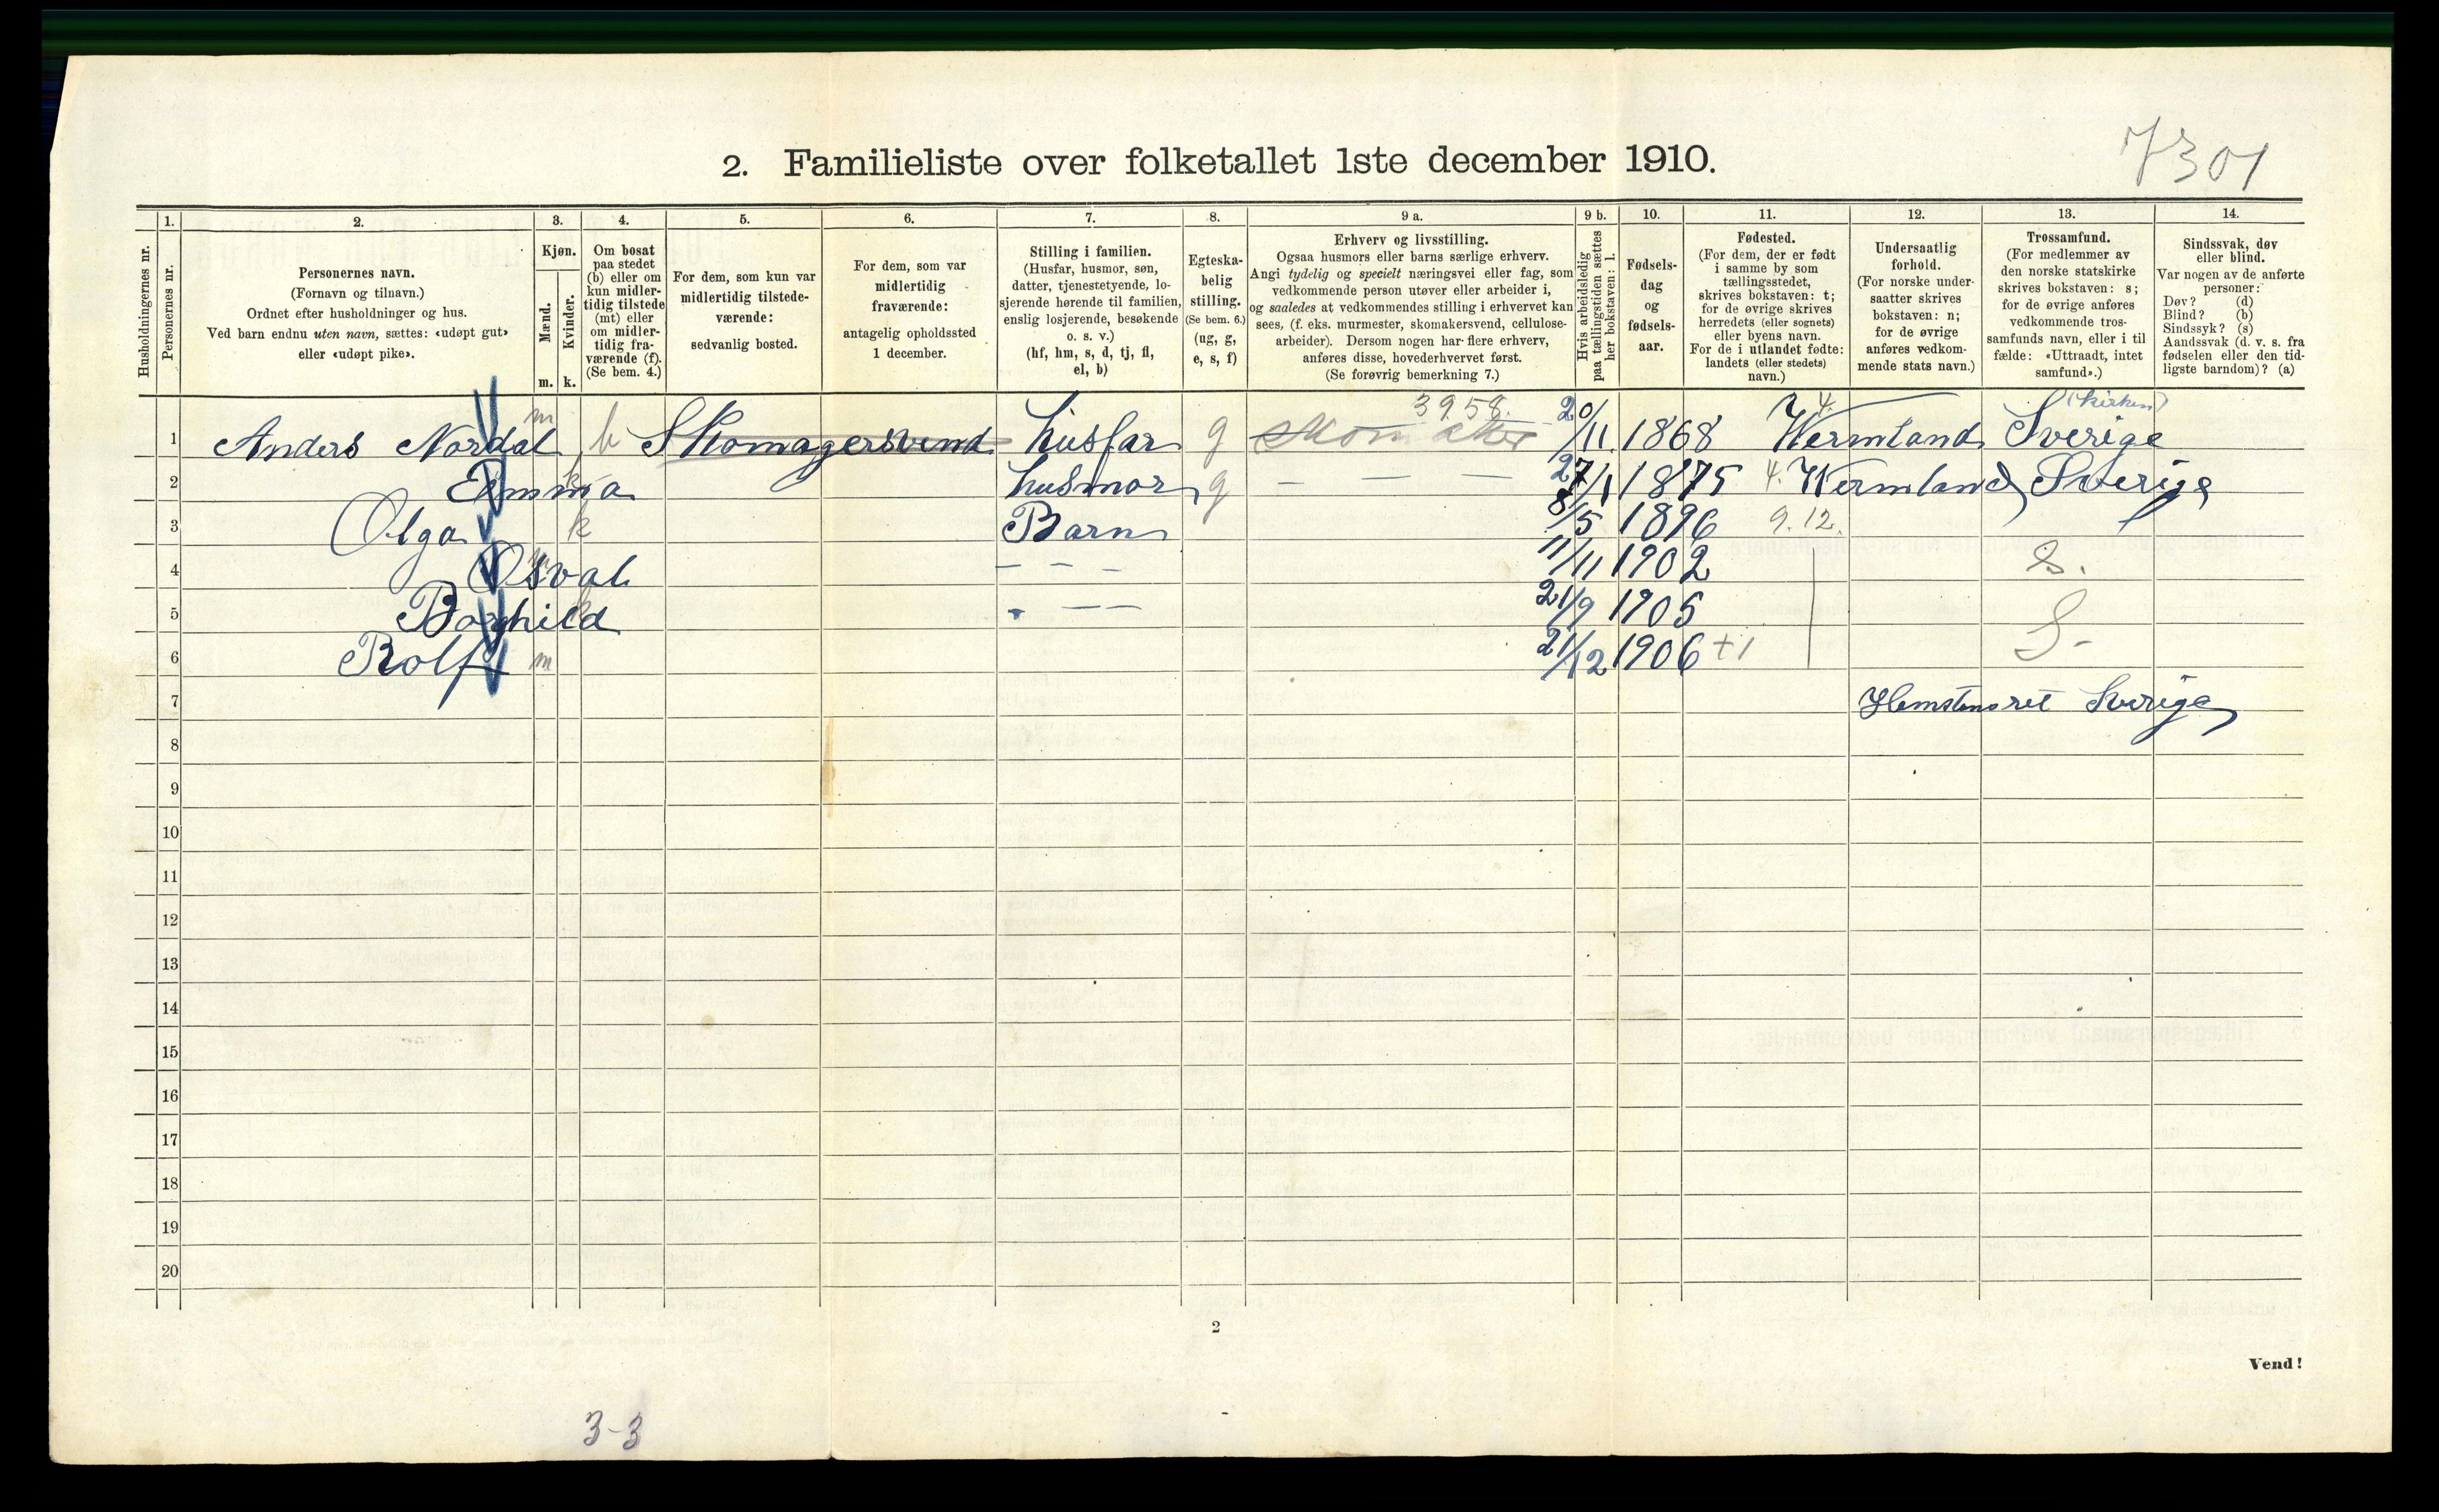 7301
2. Familieliste over folketallet 1ste december 1910.
Husholdningernes nr.
1. Personernes nr.
2. Personernes navn.
(Fornavn og tilnavn.)
Ordnet efter husholdninger og hus.
Ved barn endnu uten navn, sættes: «udøpt gut»
eller «udøpt pike».
3. Kjøn.
Mænd. m.
Kvinder. k.
4. Om bosat
paa stedet
(b) eller om
kun midler-
tidig tilstede
(mt) eller
om midler-
tidig fra-
værende (f).
(Se bem. 4.)
5. For dem, som kun var
midlertidig tilstede-
værende:
sedvanlig bosted.
6. For dem, som var
midlertidig
fraværende:
antagelig opholdssted
1 december.
7. Stilling i familien.
(Husfar, husmor, søn,
datter, tjenestetyende, lo-
sjerende hørende til familien,
enslig losjerende, besøkende
o. s. v.)
(hf, hm, s, d, tj, fl,
el, b)
8. Egteska-
belig
stilling.
(Se bem. 6.)
(ug, g,
e, s, f)
9 a. Erhverv og livsstilling.
Ogsaa husmors eller barns særlige erhverv.
Angi tydelig og specielt næringsvei eller fag, som
vedkommende person utøver eller arbeider i,
og saaledes at vedkommendes stilling i erhvervet kan
sees, (f. eks. murmester, skomakersvend, cellulose-
arbeider). Dersom nogen har flere erhverv,
anføres disse, hovederhvervet først.
(Se forøvrig bemerkning 7.)
9 b. Hvis arbeidsledig
paa tællingstiden sættes
her bokstaven: l.
10. Fødsels-
dag
og
fødsels-
aar.
11. Fødested.
(For dem, der er født
i samme by som
tællingsstedet,
skrives bokstaven: t;
for de øvrige skrives
herredets (eller sognets)
eller byens navn.
For de i utlandet fødte:
landets (eller stedets)
navn.)
12. Undersaatlig
forhold.
(For norske under-
saatter skrives
bokstaven: n;
for de øvrige
anføres vedkom-
mende stats navn.)
13. Trossamfund.
(For medlemmer av
den norske statskirke
skrives bokstaven: s;
for de øvrige anføres
vedkommende tros-
samfunds navn, eller i til
fælde: «Uttraadt, intet
samfund».)
14. Sindssvak, døv
eller blind.
Var nogen av de anførte
personer:
Døv? (d)
Blind? (b)
Sindssyk? (s)
Aandssvak (d. v. s. fra
fødselen eller den tid-
ligste barndom)? (a)
3958. 4. (kirken)
1 Anders Nordal m b Skomagersvend husfar g Skomaker 20/11 1868 Wermland Sverige
2 Emma k husmor g — — — 27/1 1875 4. Wermland Sverige
3 Olga k Barn 8/5 1896 9.12.
4 Osval m – – – 11/11 1902 S.
5 Borghild k – – 21/9 1905 S.
6 Rolf m 21/12 1906 +1
7 Sverige
8
9
10
11
12
13
14
15
16
17
18
19
20
2
Vend!
3-3